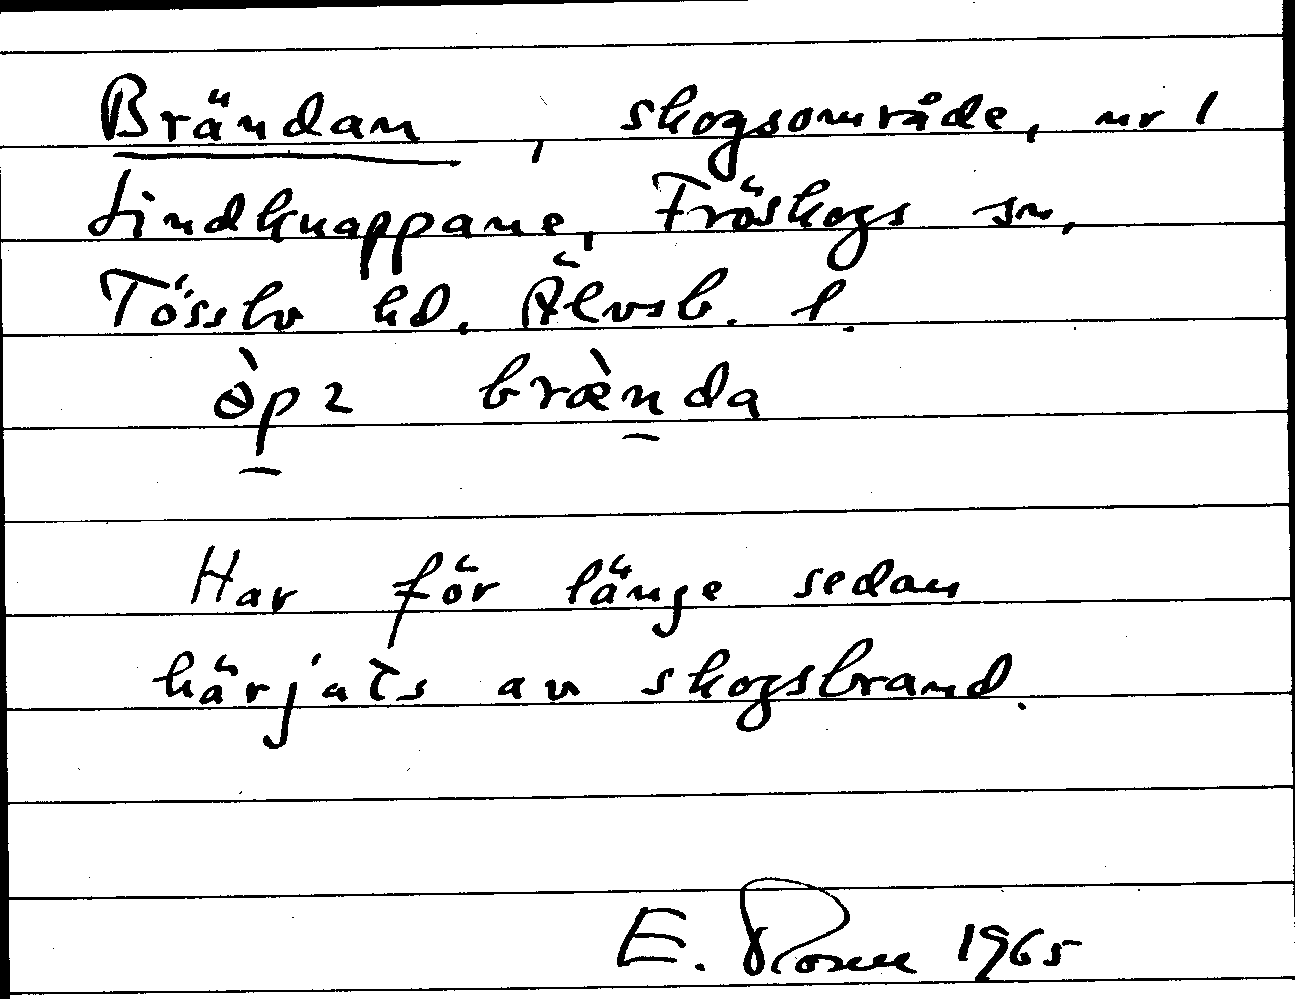 Brändan, skogsområde, nr 1
Lindknappane, Fröskogs sn,
Tössbo hd. Älvsb. l.
ɵ̀p̲2 bræ̀n̲da
Har för länge sedan
härjats av skogsbrand.
E. 1965